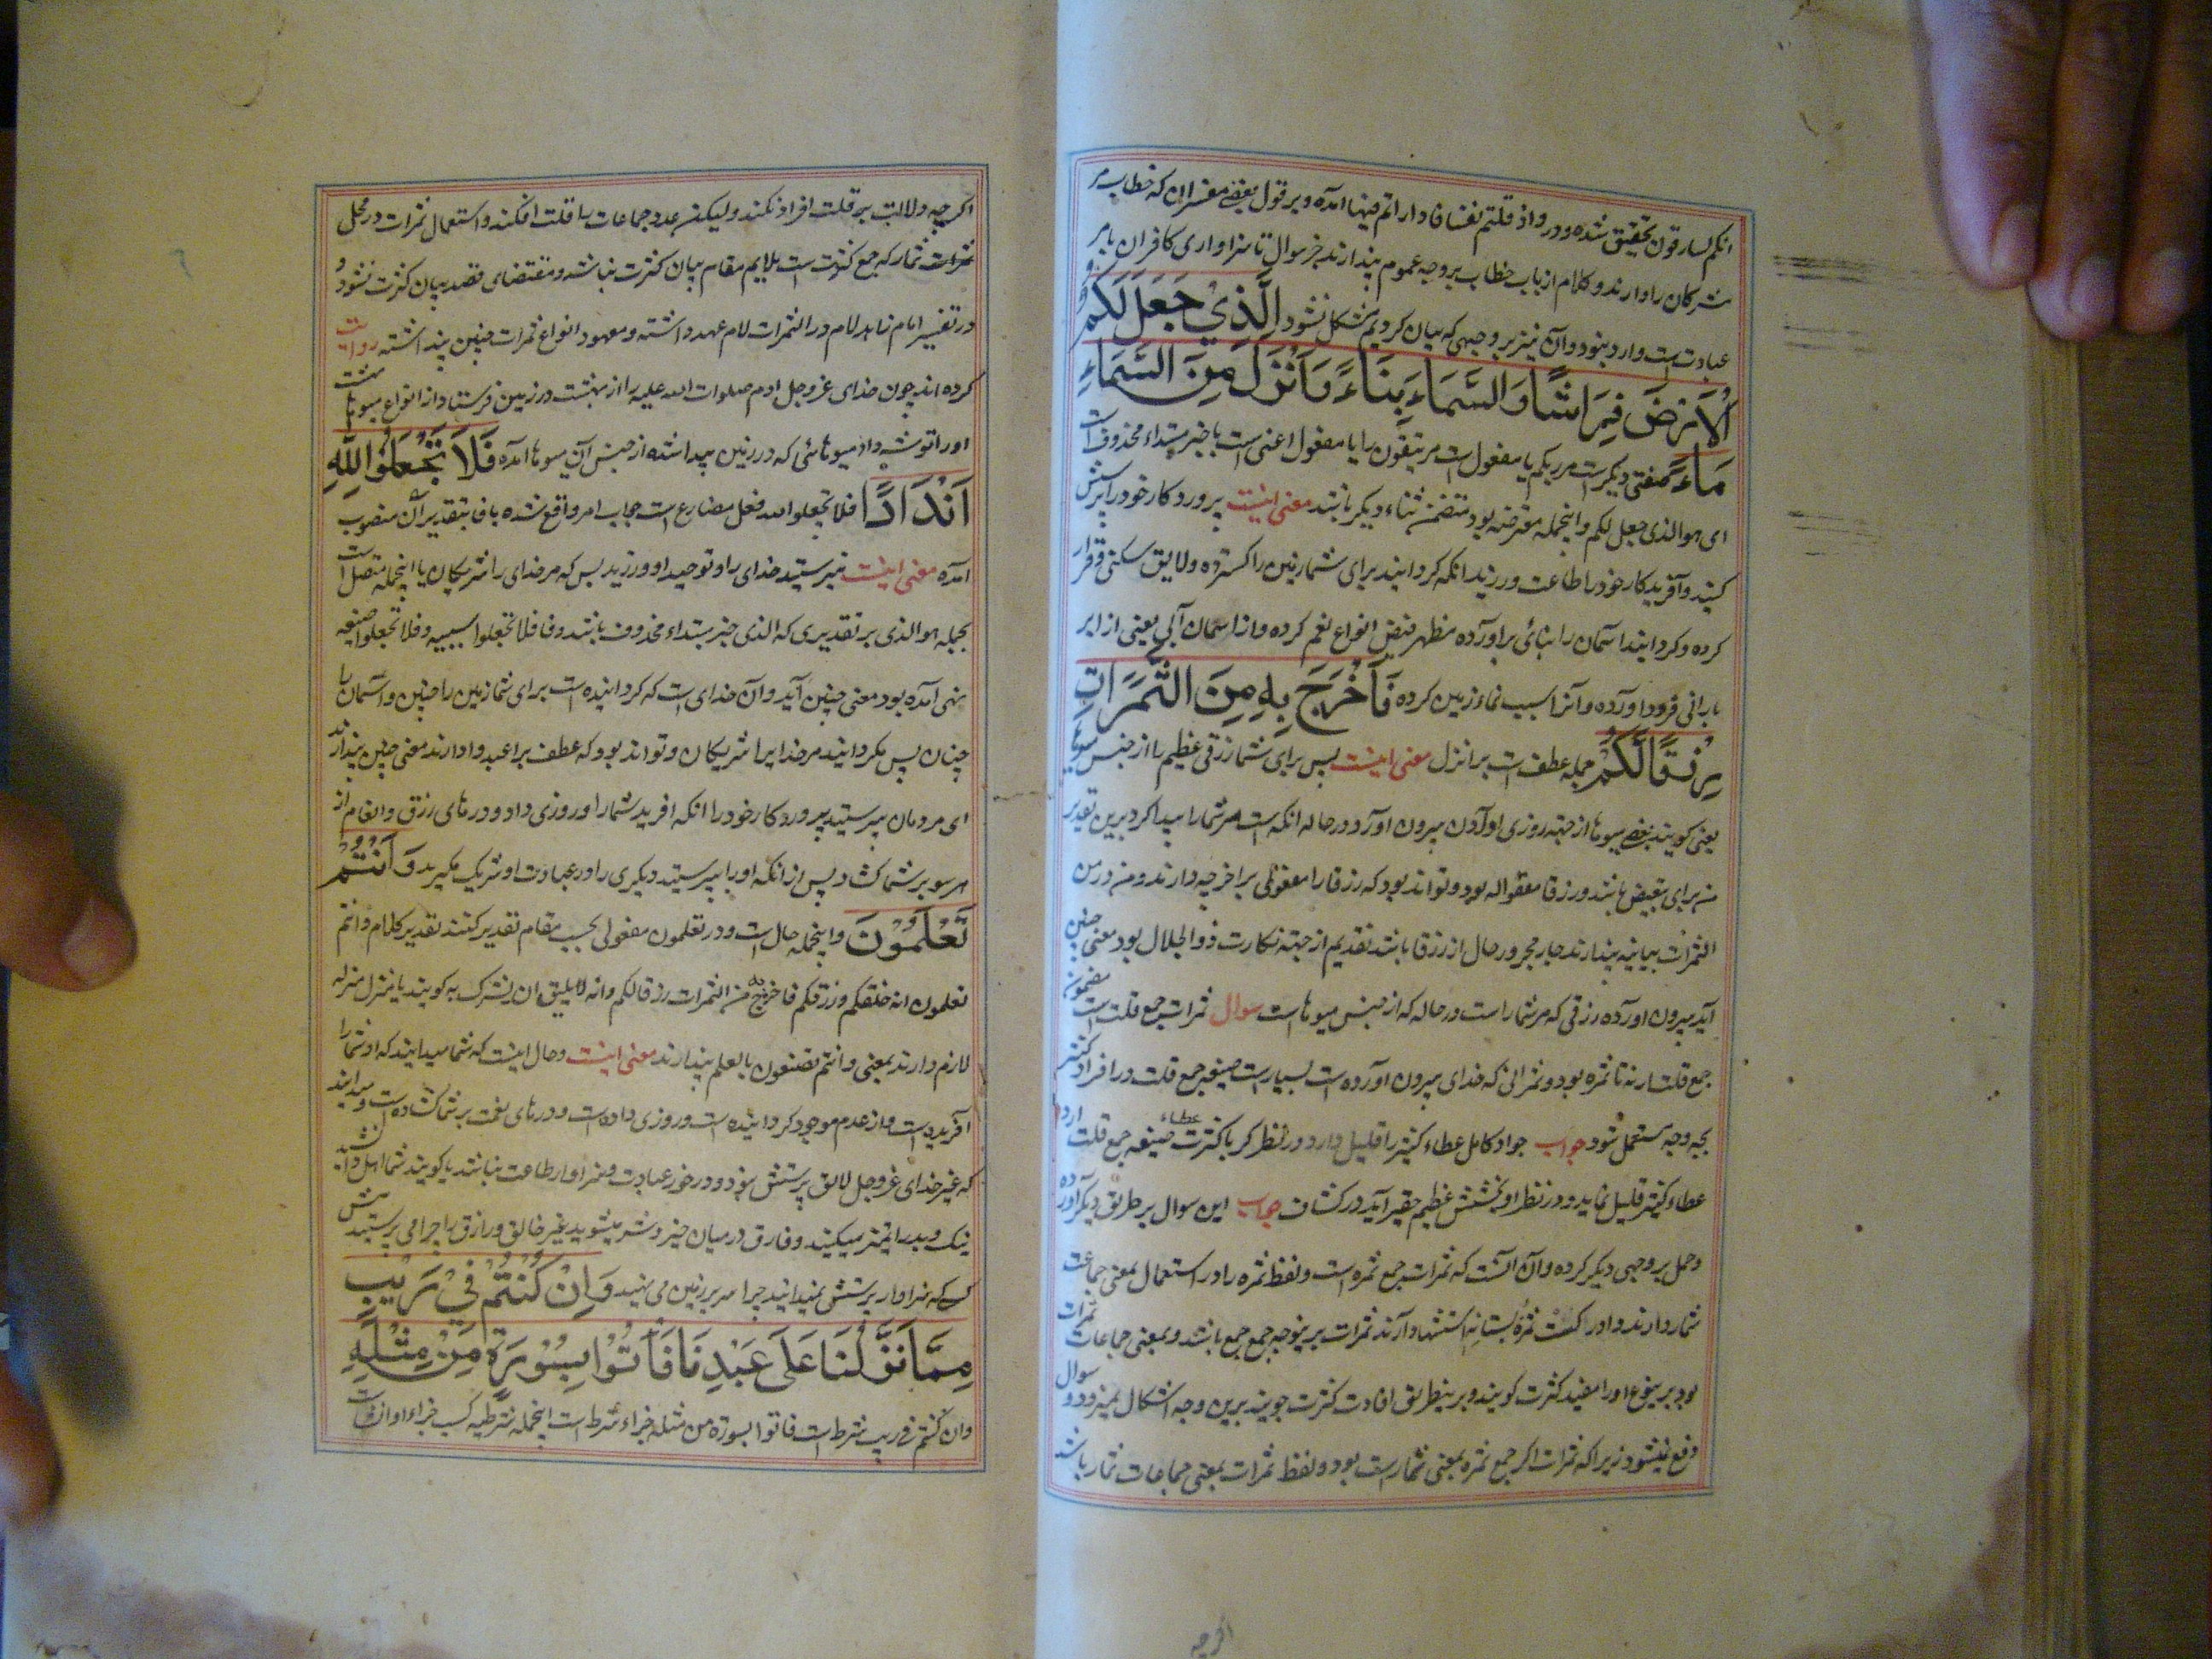 انکم لسارقون تحقیق شده و در واذ قتلتم نفسا فاداراتم فیها امده و بر قول بعضے مفسران که خطاب مر
مشرکان را دارند و کلام از باب خطاب بر وجه عموم پندارند جز سوال تا سزاواری کافران بامر
عبادت است وارد نبود و آن نیز بر وجهی که بیان کردیم مشکل نشود الَّذِیْ جَعَلَ لَکُمُ
الْاَرْضَ فِرَاشًا وَالسَّمَاءَ بِنَاءً وَاَنْزَلَ مِنَ السَّمَاءِ
مَاءً صفتی دیکر است مر ربکم یا مفعول است مر تتقون را یا مفعول اعنی است یا خبر مبتداء محذوف است
ای هو الذی جعل لکم و اینجمله معترضه بود متضمن ثناء دیکر باشد معنی اینست پروردکار خود را پرستش
کنید و آفریدکار خود را طاعت ورزید انکه کردانید برای شما زمین را کسترده و لایق سکنی و قرار
کرده و کردانید اسمان را بنائی براورده مظهر فیض انواع نعم کرده و از اسمان آبی یعنی از ابر
بارانی فرود اورده و آنرا سبب نماء زمین کرده فَاَخْرَجَ بِهِ مِنَ الثَّمَرَاتِ
رِزْقًا لَّکُمْ جمله عطف است بر انزل معنی اینست پس برای شما رزقی عظیم را از جنس میوها
یعنی کویند بعضے میوها از جهته روزی اوردن بیرون اورد در حاله انکه است مر شما را پیدا کرد برین تقدیر
من برای تبعیض باشد و رزقا مفعول له بود و تواند بود که رزقا را مفعولی براخرج به دارند و من در من
الثمرات بیانیه پندارند جار مجرور حال از رزقا باشد تقدیم از جهته نکارت ذو الحال بود معنی چنین
آید بیرون اورده رزقی که مر شما راست در حاله که از جنس میوهاست سوال ثمرات جمع قلت است مضمون
جمع قلت از سه تا نه بود و ثمراتی که خدای بیرون اورده است بسیار است صیغه جمع قلت در افراد کثیر
بچه وجه مستعمل شود جواب جواد کامل عطاء کثیر را قلیل دارد و در نظر کریا کثرت عطاء صیغه جمع قلت ارد
عطاء کثیر قلیل نماید و در نظر او بخشش عظیم حقیر آید در کشاف جواب این سوال بر طریق دیکر اورده
و حمل بر وجهی دیکر کرده و آن آنست که ثمرات جمع ثمره است و لفظ ثمره را در استعمال بمعنی جماعت
ثمار دارند و ادرکت ثمرة بستانه استشهاد آرند ثمرات برینوجه جمع جمع باشد و بمعنی جماعات ثمرات
بود برینوع او را مفید کثرت کویند و برینطریق افادت کثرت جویند برین وجه اشکال نمیرود و سوال
دفع نمیشود زیرا که ثمرات اکر جمع ثمره بمعنی ثمار است بود و لفظ ثمرات بمعنی جماعات ثمار باشد
اکرچه
اکرچه دلالت بر قلت افراد نکند ولیکن بعدد جماعات باقلت افکند و استعمال ثمرات در محل
ثمرات ثمار که جمع کثرت است بلایم مقام بیان کثرت نباشد و مقتضای قصد بیان کثرت نشود و
در تفسیر امام زاهد لام در الثمرات لام عهد داشته و معهود انواع ثمرات چنین پنداشته روایت
کرده اند چون خدای عز وجل ادم صلوات الله علیه را از بهشت در زمین فرستاد از انواع میوهاء بهشت
او را توشه داد میوهائی که در زمین پیدا شده از جنس آن میوها امده فَلَا تَجْعَلُوْا لِلّٰهِ
اَنْدَادًا فلا تجعلوا لله فعل مضارع است جواب امر واقع شده با فا بتقدیر ان منصوب
امده معنی اینست بپرستید خدای را و توحید او ورزید پس که مر خدای را شریکان یا اینجمله متصل است
بجمله هو الذی بر تقدیری که الذی خبر مبتداء محذوف باشد و فا فلا تجعلوا سببیه و فلا تجعلوا صیغه
نهی امده بود معنی چنین آید و آن خدای است که کردانیده است برای شما زمین را چنین و اسمان را
چنان پس مکردانید مر خدایرا شریکان و تواند بود که عطف بر اعبدوا دارند معنی چنین پندارند
ای مردمان بپرستید پروردکار خود را انکه افرید شما را و روزی داد و درهای رزق و انعام از
هر سو بر شما کشاد پس از انکه او را بپرستید دیکری را در عبادت او شریک مکیرید وَ اَنْتُمْ
تَعْلَمُوْنَ و اینجمله حال است و در تعلمون مفعولی بحسب مقام تقدیر کنند تقدیر کلام و انتم
تعلمون انه خلقکم و رزقکم فاخرج به من الثمرات رزقا لکم و انه لا یلیق ان یشرک به کویند یا منزل منزله
لازم دارند بمعنی و انتم تصنعون بالعلم پندارند معنی اینست و حال اینست که شما میدانید که او شما را
آفریده است و از عدم موجود کردانیده است و روزی داده است و درهای نعمت بر شما کشاده است و میدانید
که غیر خدای عز وجل لایق پرستش نبود و در خور عبادت و سزاوار طاعت نباشد یا کویند شما اهل دانشید
نیک و بد را تمیز میکنید و فارق درمیان خیر و شر میشوید غیر خالق و رازق را چرا می پرستید پیش
کسے که سزاوار پرستش نمیدانید چرا سر بر زمین می نهید وَاِنْ کُنْتُمْ فِیْ رَیْبٍ
مِمَّا نَزَّلْنَا عَلٰی عَبْدِنَا فَأْتُوْا بِسُوْرَةٍ مِنْ مِثْلِهِ
و ان کنتم فی ریب شرط است فاتوا بسورة من مثله جزاء شرط است اینجمله شرطیه